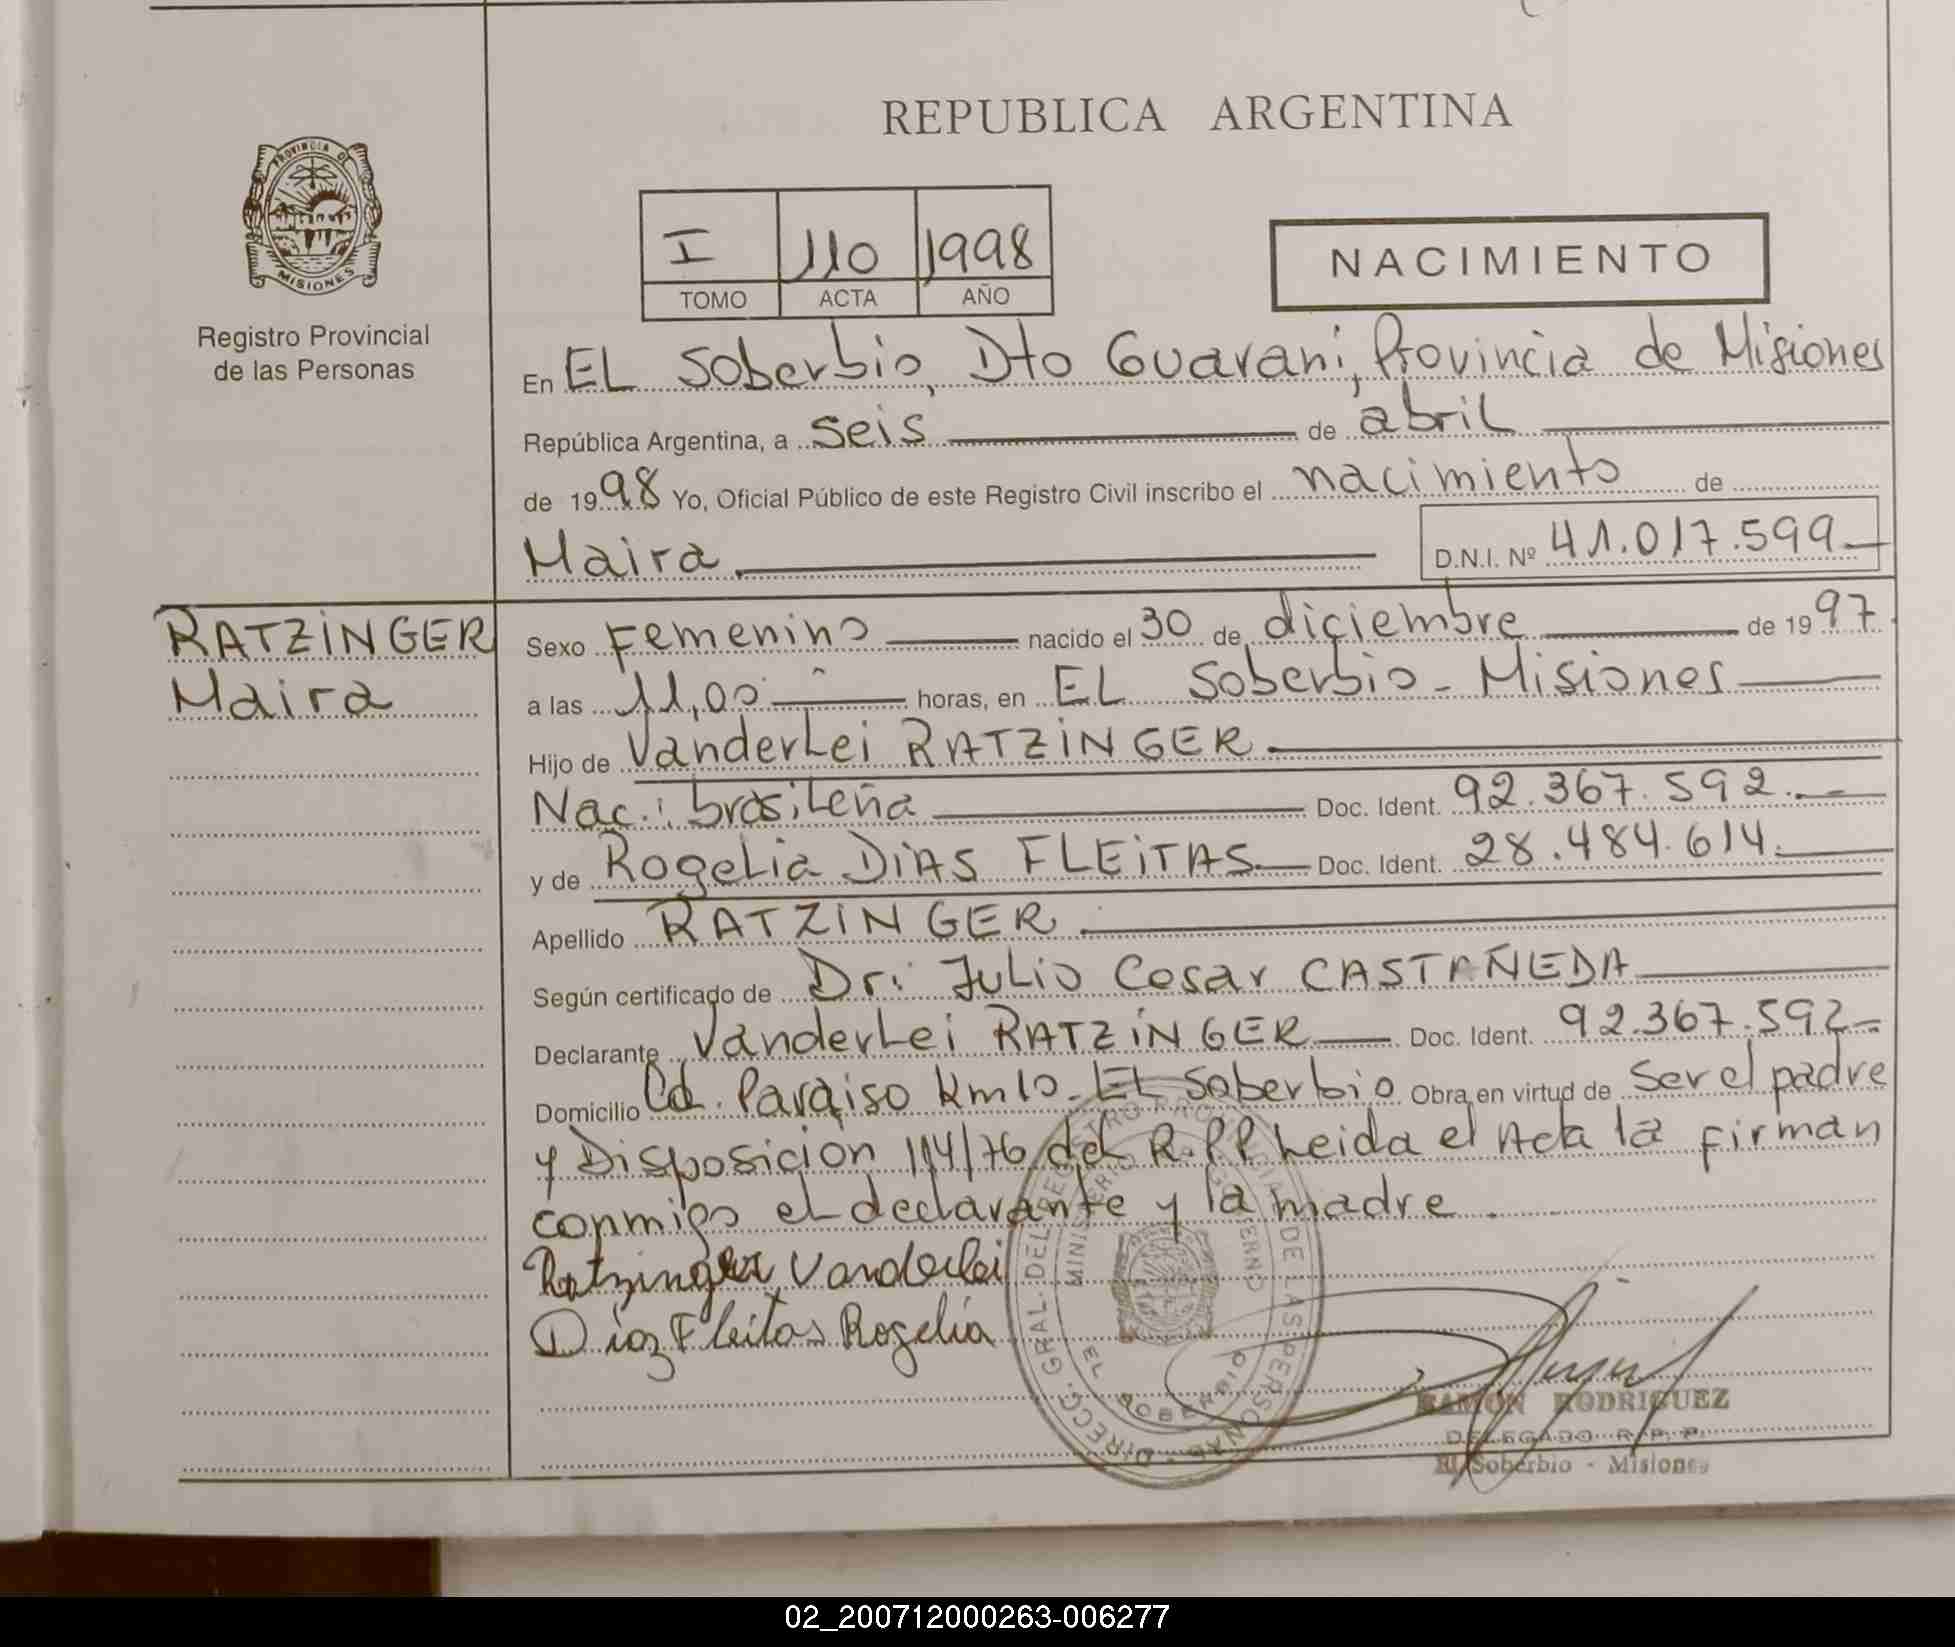 REPUBLICA ARGENTINA
PROVINCIA DE
MISIONES
Registro Provincial
de las Personas
I 110 1998
TOMO ACTA AÑO
NACIMIENTO
En EL Soberbio, Dto Guarani, Provincia de Misiones
República Argentina, a seis de abril
de 1998 Yo, Oficial Público de este Registro Civil inscribo el nacimiento de
Maira D.N.I. Nº 41.017.599
RATZINGER
Maira
Sexo Femenino nacido el 30 de diciembre de 1997
a las 11,00 horas, en EL Soberbio - Misiones
Hijo de Vanderlei RATZINGER
Nac.: brasileña Doc. Ident. 92.367.592.
y de Rogelia DIAS FLEITAS Doc. Ident. 28.484.614.
Apellido RATZINGER
Según certificado de Dr: Julio Cesar CASTAÑEDA
Declarante Vanderlei RATZINGER Doc. Ident. 92.367.592
Domicilio Cd. Paraiso Km10. EL Soberbio Obra en virtud de ser el padre
y Disposicion 114/76 del R.P.P Leida el Acta la firman
conmigo el declarante y la madre.
Ratzinger Vanderlei
Diaz Fleitas Rogelia
DIRECC. GRAL. DEL REGISTRO PROVINCIAL DE LAS PERSONAS
MINISTERIO GOBIERNO
EL SOBERBIO
RAMON RODRIGUEZ
DELEGADO R. P. P.
El Soberbio - Misiones
02_200712000263-006277